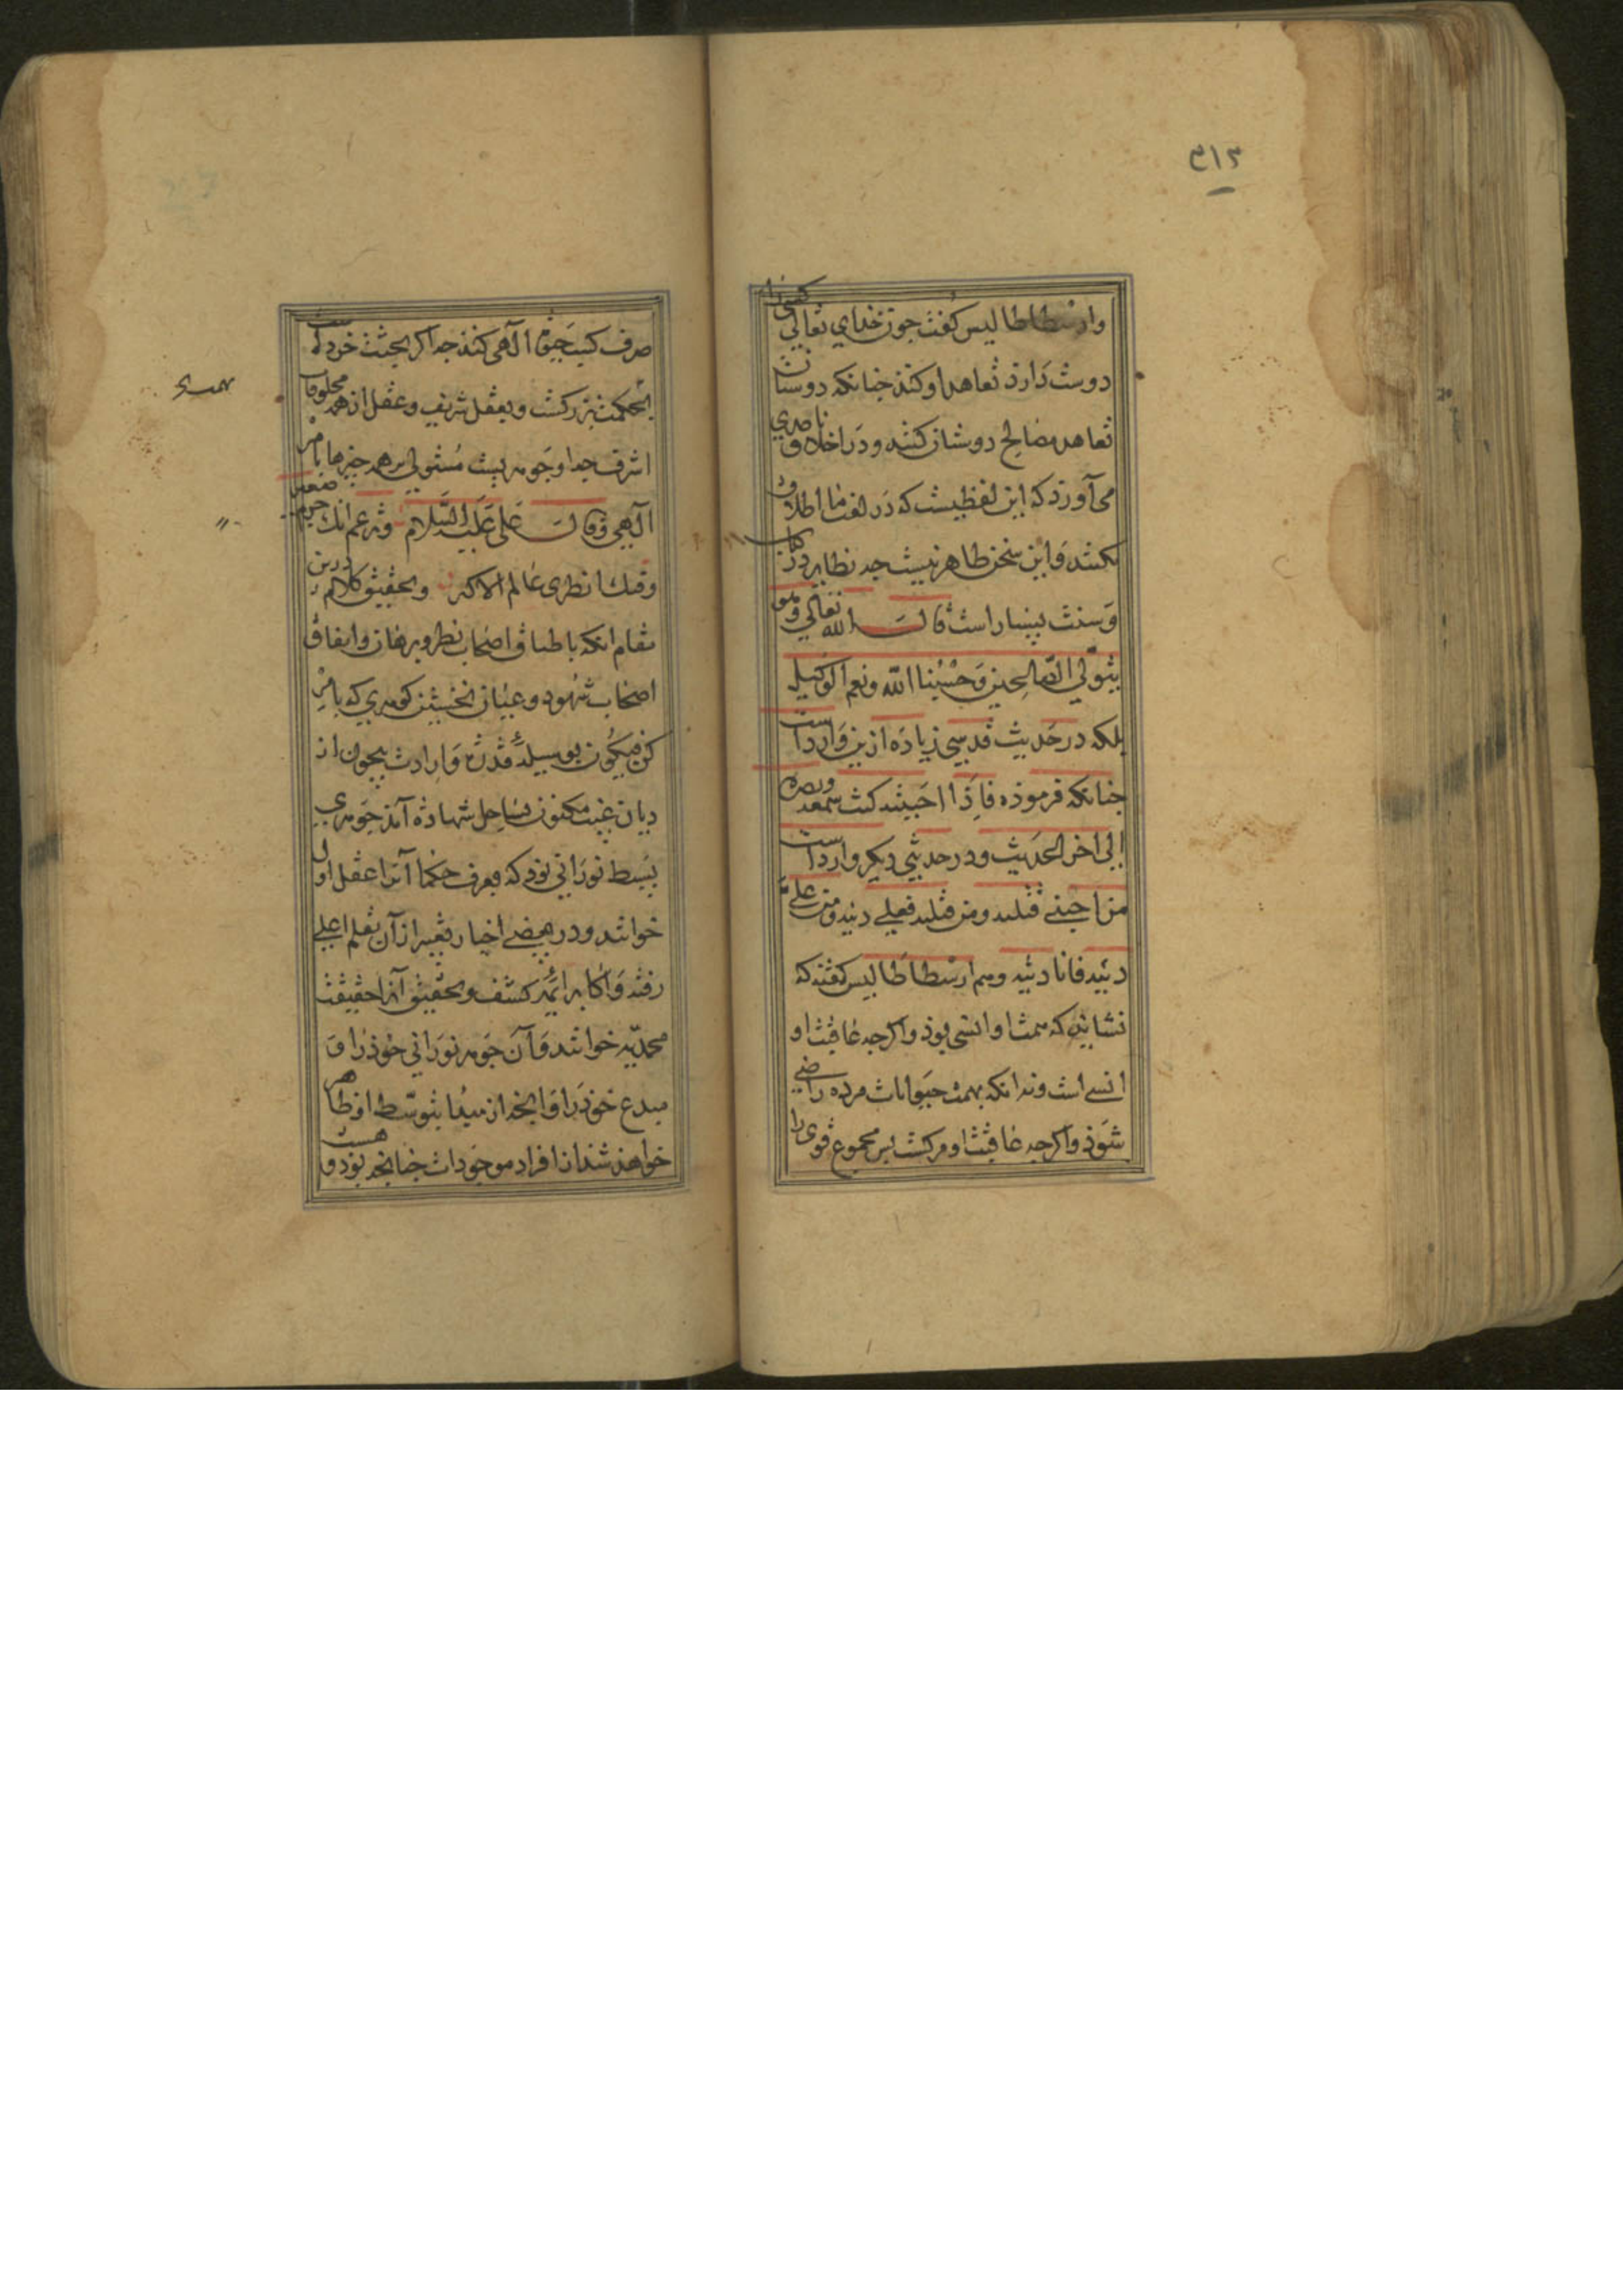 ۳۱۲
وارسطاطاليس كفت جون خداي تعالي كسي را
دوست دارذ تعاهد او كنذ جنانكه دوستان
تعاهد مصالح دوستان كنند و در اخلاق ناصري
مي آورد كه اين لفظيست كه در لغت ما اطلاق
نكنند و اين سخن ظاهر نيست جه نظاير در كتاب
و سنت بسيار است قال الله تعالي وهو
يتولي الصالحين و حسبنا الله ونعم الوكيل
بلكه در حديث قدسي زياده ازين وارد است
جنانكه فرموذه فاذا احببته كنت سمعه وبصره
الي اخر الحديث و در حديثي ديكر وارد است
من احبني قتلته ومن قتلته فعلي ديته ومن علي
ديته فانا ديته وهم ارسطاطاليس كفته كه
نشايذ كه همت او انسي بوذ و اكرجه عاقبت او
انسي است و نه انكه بهمت حيوانات مرده راضي
شوذ و اكرجه عاقبت او مركست بس مجموع قوي را
صرف كسب حيوة الهي كنذ جه اكر بجثت خرد است
بحكمت بزركست و بعقل شريف و عقل از همه مخلوقات
اشرف جه او جوهريست مستولي بر همه جيزها بامر
الهي وقال علي عليه السلام وتزعم انك جرم صغير
وفيك انطوى عالم الاكبر و تحقيق كلام درين
مقام انكه باطباق اصحاب نظر و برهان و اتفاق
اصحاب شهود و عيان نخستين كوهري كه بامر
كن فيكون بوسيله قدرة و ارادت بيجون از
درياي غيب مكنون بساحل شهادة آمذ جوهري
بسيط نوراني بود كه بعرف حكما آنرا عقل اول
خوانند و در بعضي اخبار تعبير از آن بقلم اعلي
رفته و اكابر ائمه كشف و تحقيق آنرا حقيقت
محمديه خوانند و آن جوهر نوراني خوذ را و
مبدع خوذ را و انجه از مبدا بتوسط او ظاهر
خواهد شد از افراد موجودات جنانجه بود و هست